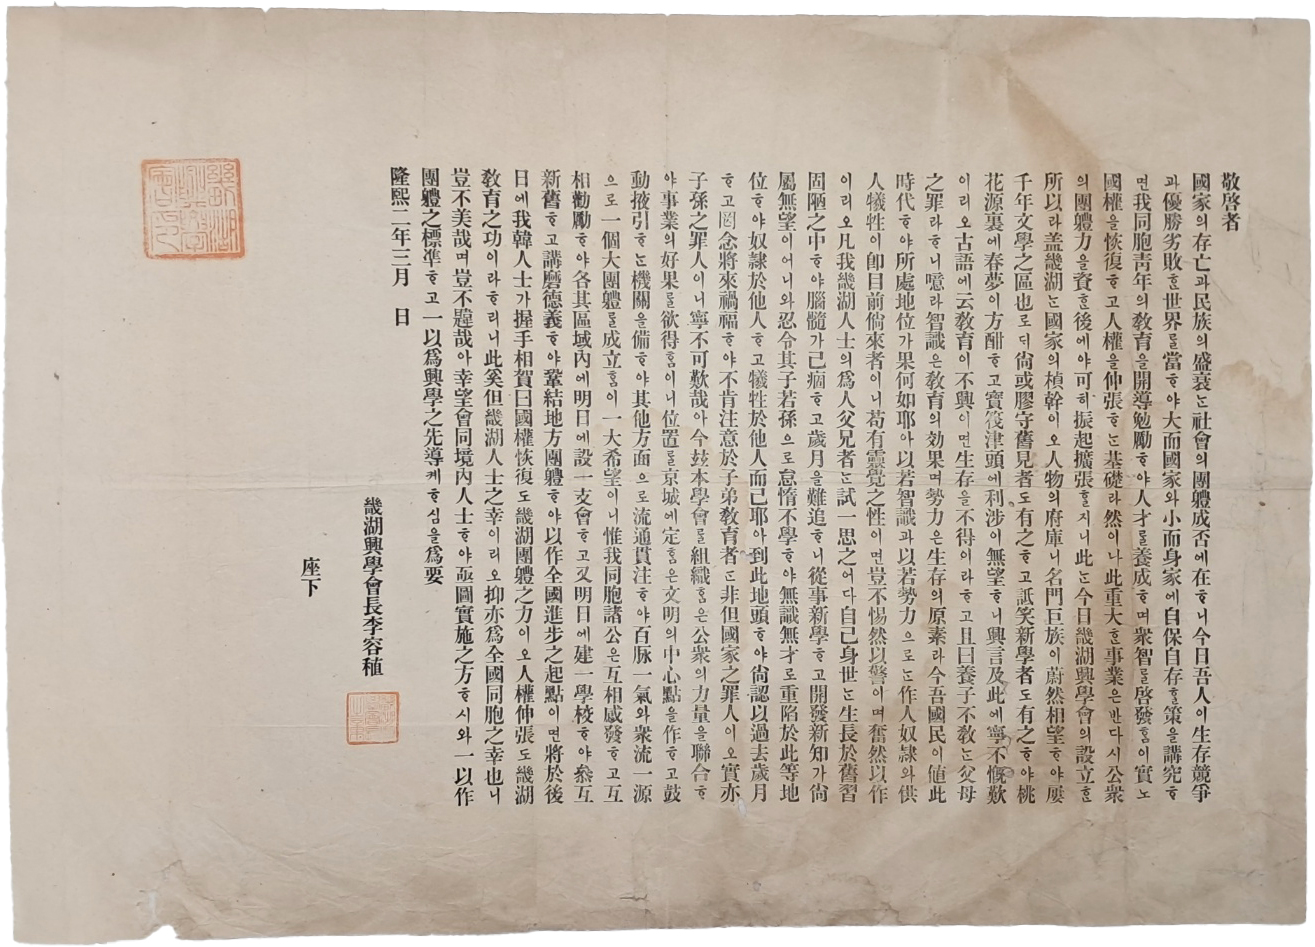 敬啓者
國家의存亡과民族의盛衰는社會의團軆成否에在ᄒᆞ니今日吾人이生存競爭
과優勝劣敗ᄒᆞᆫ世界를當ᄒᆞ야大而國家와小而身家에自保自存ᄒᆞᆯ策을講究ᄒᆞ
면我同胞靑年의敎育을開導勉勵ᄒᆞ야人才를養成ᄒᆞ며衆智를啓發ᄒᆞᆷ이實노
國權을恢復ᄒᆞ고人權을伸張ᄒᆞᄂᆞᆫ基礎라然이나此重大ᄒᆞᆫ事業은반다시公衆
의團軆力을資ᄒᆞᆫ後에야可히振起擴張ᄒᆞᆯ지니此ᄂᆞᆫ今日畿湖興學會의設立ᄒᆞᆫ
所以라盖畿湖ᄂᆞᆫ國家의楨幹이오人物의府庫니名門巨族이蔚然相望ᄒᆞ야屢
千年文學之區也로ᄃᆡ尙或膠守舊見者도有之ᄒᆞ고詆笑新學者도有之ᄒᆞ야桃
花源裏에春夢이方酣ᄒᆞ고寶筏津頭에利涉이無望ᄒᆞ니興言及此에寧不慨歎
이리오古語에云敎育이不興이면生存을不得이라ᄒᆞ고且曰養子不敎ᄂᆞᆫ父母
之罪라ᄒᆞ니噫라智識은敎育의効果며勢力은生存의原素라今吾國民이値此
時代ᄒᆞ야所處地位가果何如耶아以若智識과以若勢力으로ᄂᆞᆫ作人奴隷와供
人犧牲이卽目前倘來者이니苟有靈覺之性이면豈不惕然以警이며奮然以作
이리오凡我畿湖人士의爲人父兄者ᄂᆞᆫ試一思之어다自己身世ᄂᆞᆫ生長於舊習
固陋之中ᄒᆞ야腦髓가已痼ᄒᆞ고歲月을難追ᄒᆞ니從事新學ᄒᆞ고開發新知가尙
屬無望이어니와忍令其子若孫으로怠惰不學ᄒᆞ야無識無才로重陷於此等地
位ᄒᆞ야奴隷於他人ᄒᆞ고犧牲於他人而已耶아到此地頭ᄒᆞ야尙認以過去歲月
ᄒᆞ고罔念將來禍福ᄒᆞ야不肯注意於子弟敎育者ᄂᆞᆫ非但國家之罪人이오實亦
子孫之罪人이니寧不可歎哉아今玆本學會를組織ᄒᆞᆷ은公衆의力量을聯合ᄒᆞ
야事業의好果를欲得ᄒᆞᆷ이니位置를京城에定ᄒᆞᆷ은文明의中心點을作ᄒᆞ고鼓
動掖引ᄒᆞᄂᆞᆫ機關을備ᄒᆞ야其他方面으로流通貫注ᄒᆞ야百脉一氣와衆流一源
으로一個大團軆를成立ᄒᆞᆷ이一大希望이니惟我同胞諸公은互相感發ᄒᆞ고互
相勸勵ᄒᆞ야各其區域內에明日에設一支會ᄒᆞ고又明日에建一學校ᄒᆞ야叅互
新舊ᄒᆞ고講磨德義ᄒᆞ야鞏結地方團軆ᄒᆞ야以作全國進步之起點이면將於後
日에我韓人士가握手相賀曰國權恢復도畿湖團軆之力이오人權伸張도畿湖
敎育之功이라ᄒᆞ리니此奚但畿湖人士之幸이리오抑亦爲全國同胞之幸也니
豈不美哉며豈不韙哉아幸望會同境內人士ᄒᆞ야亟圖實施之方ᄒᆞ시와一以作
團軆之標準ᄒᆞ고一以爲興學之先導케ᄒᆞ심을爲要
隆熙二年三月　日
畿湖興學會長李容稙
座下